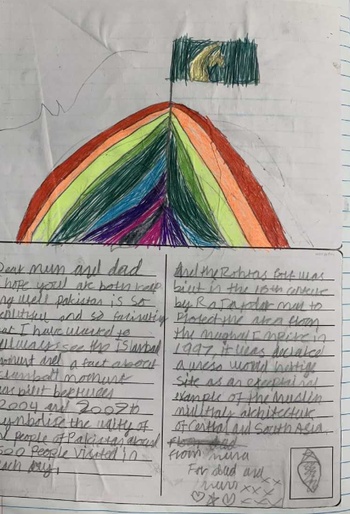 Dear mum and dad
I hope you'll are both keep
ing well pakistan is so
beautiful and so facinating
that I have wanted to
allways see the Islambad
monument and a fact about
Islambad moument
was built between
2004 and 2007
symbolise the unity of
people of Pakistan aboud
500 People Visited in
each day.
And the Rohtas fort was
biult in the 16th centere
by Raja
Protect the area from
the mughal Empire in
1997, it was declared
a unesco would hertige
site as an exceptional
example of the Muslim
military architecture
of Central and South Asia.
from
For dad and
mum xxx
xxx